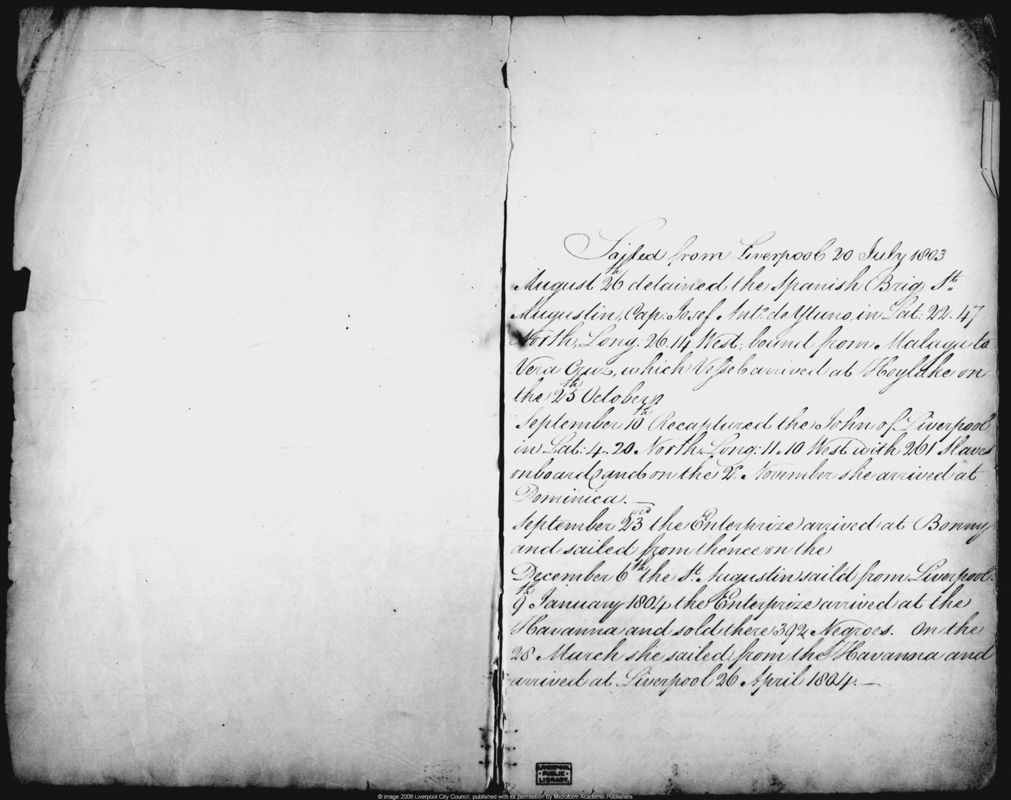 Sailed from Liverpool 20 July 1803
August 26th detained the Spanish Brig St.
Augustin, Cap: Josef Anto. de Ytuno, in Lat: 22. 47
North, Long. 26. 14 West, bound from Malaga to
Vera Cruz, which Vessel arrived at Hoylake on
the 25th October
September 10th Recaptured the John of Liverpool
in Lat: 4. 20 North, Long: 11. 10 West with 261 Slaves
onboard and on the 2d. November she arrived at
Dominica. —
September 23rd the Enterprize arrived at Bonny
and sailed from thence on the
December 6th the St. Augustin sail'd from Liverpool.
9th January 1804 the Enterprize arrived at the
Havanna and sold there 392 Negroes. On the
28 March she sailed from the Havanna and
arrived at Liverpool 26 April 1804. —
LIVERPOOL
PUBLIC
LIBRARY.
© image 2008 Liverpool City Council, published with its permission by Microform Academic Publishers